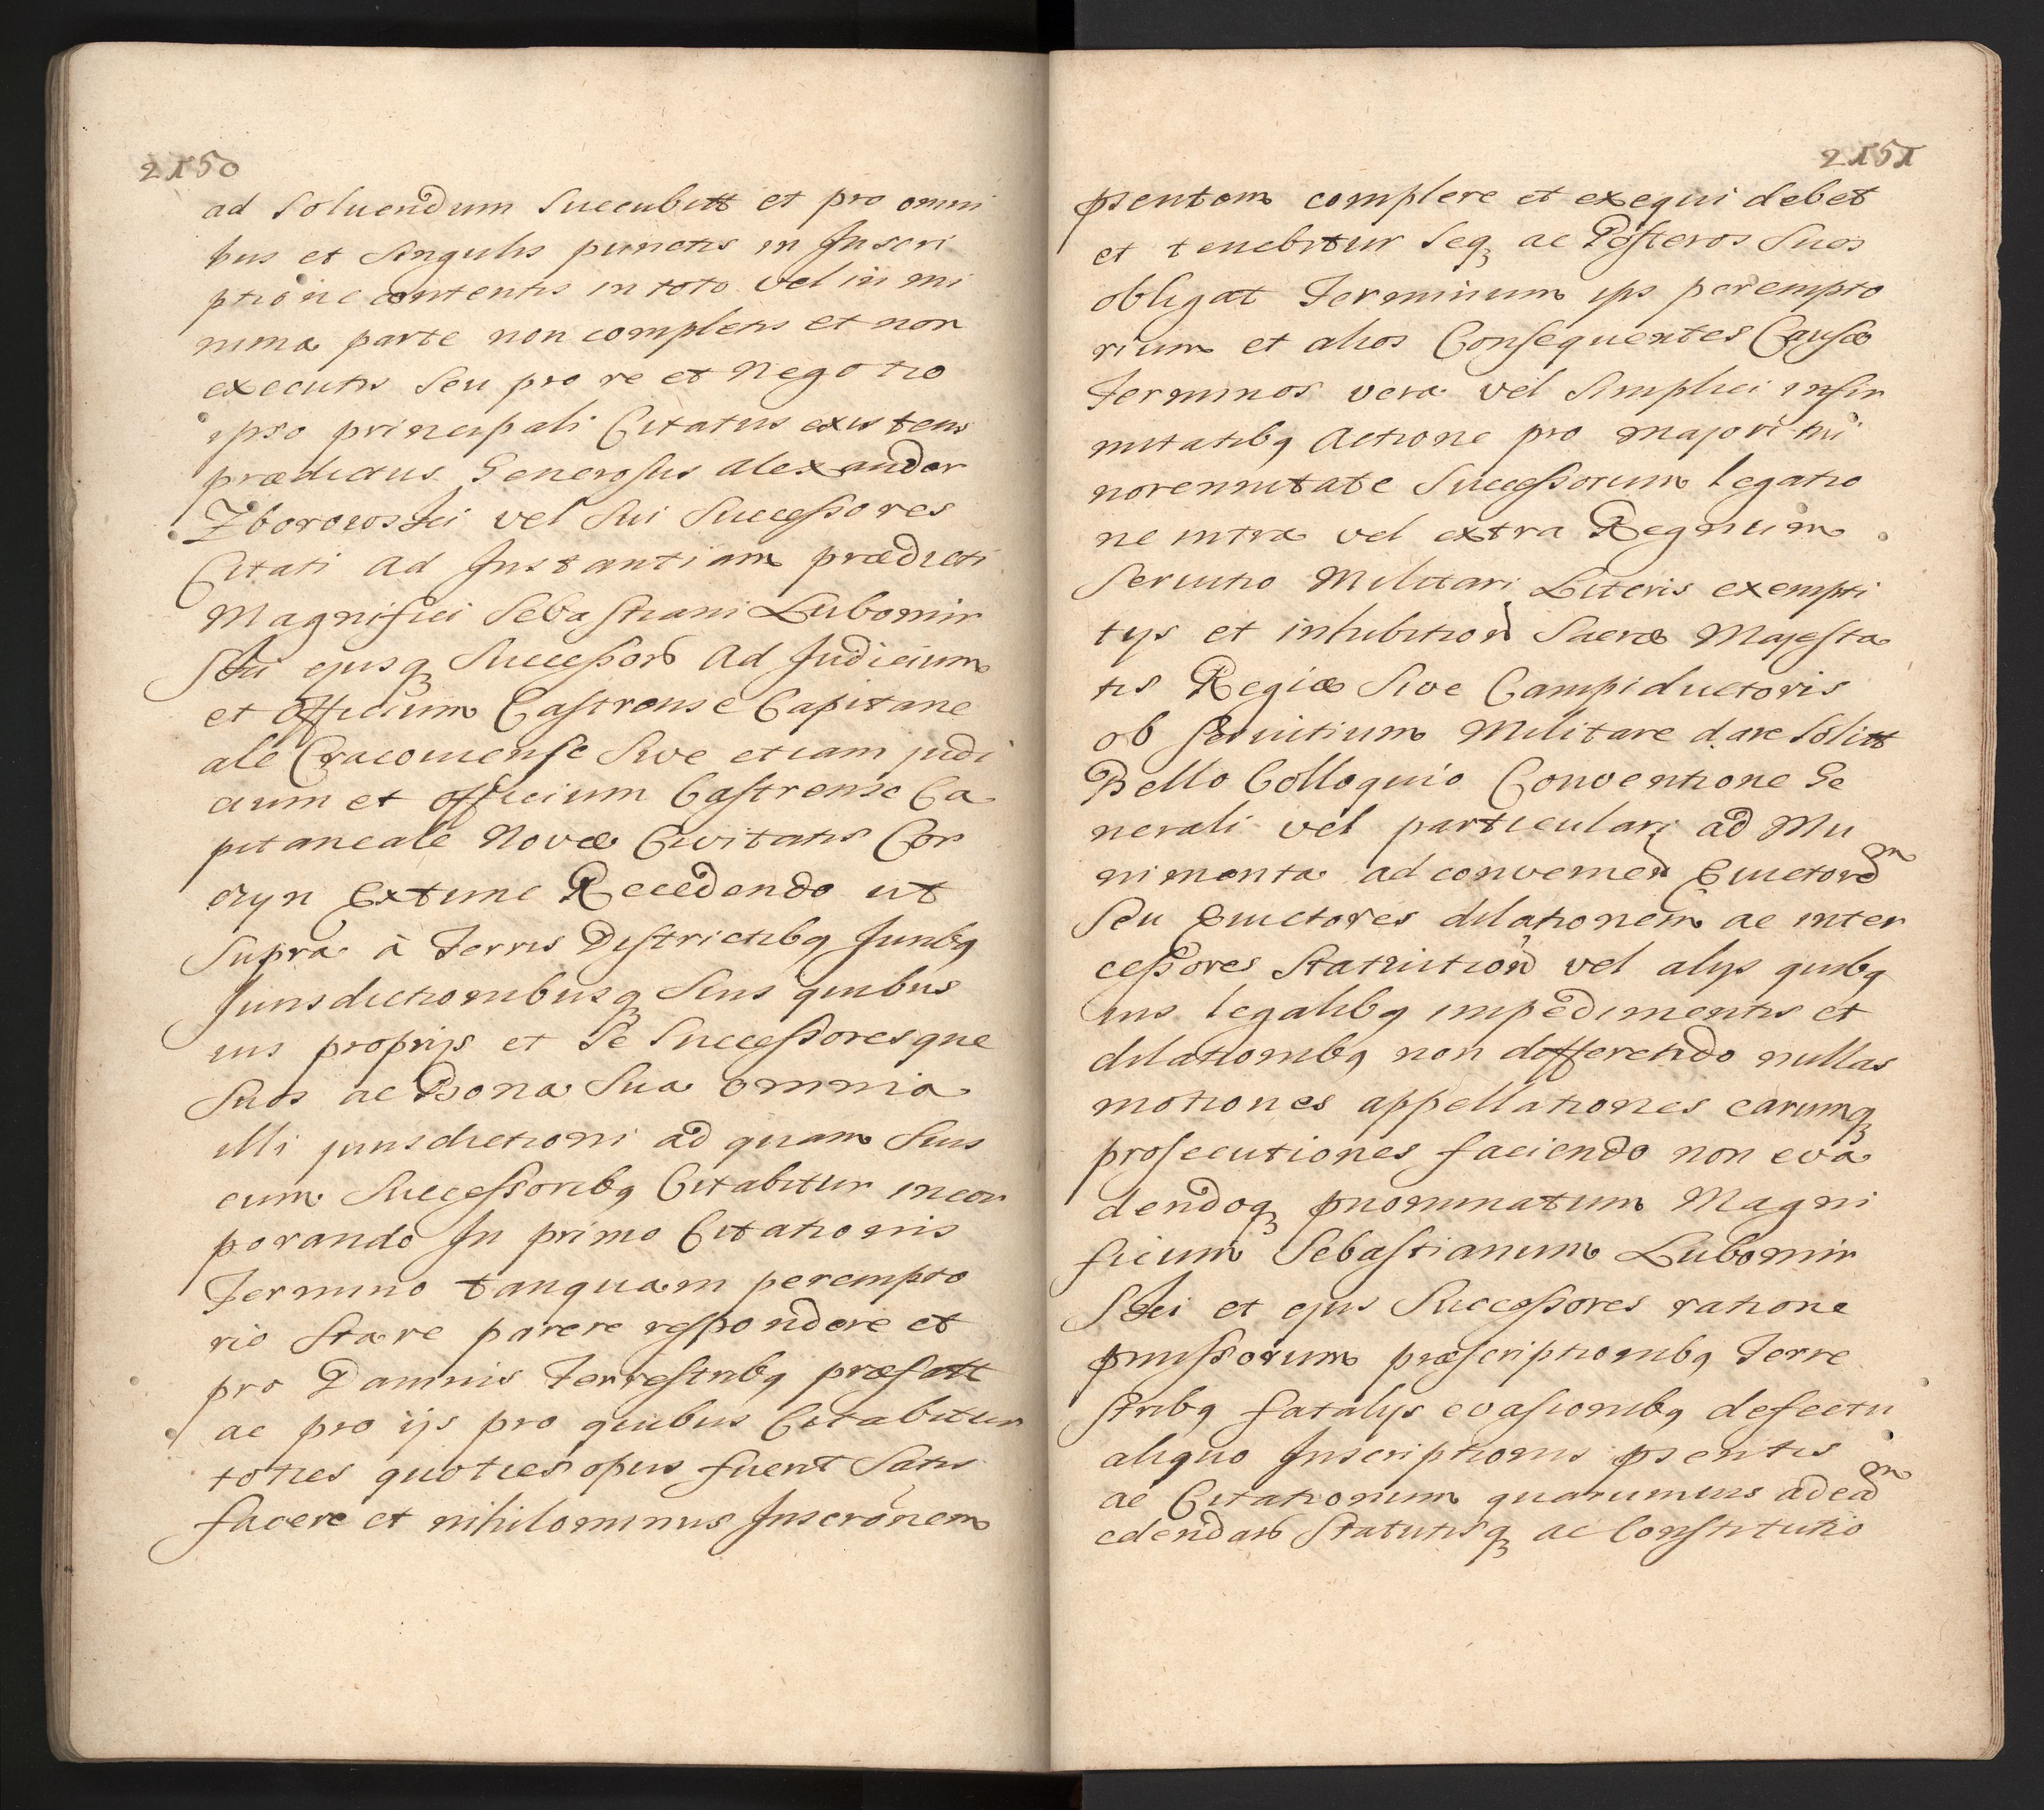 2150
ad Soluendum Succubitt et pro omni
bus et Singulis punctis in Inscri
ptione contentis in toto vel in mi
nima parte non completis et non
executis Seu pro re et negotio
ipso principali Citatus existens
prædictus Generosus Alexander
Zborowski vel Sui Successores
Citati ad Instantiam prædicti
Magnifici Sebastiani Lubomir
Ski ejusq Successorb ad Judicium
et Officium Castrense Capitane
ale Cracouiense Sive etiam judi
cium et officium Castrense Ca
pitaneale Novæ Civitatis Cor
czyn Extunc Recedendo ut
Supra à Terris Districtibq Juribq
Jurisdictionibusq Suis quibus
uis proprijs et Se Successoresque
Suos ac Bona Sua omnia
illi jurisdictioni ad quam Suis
cum Successoribq Citabitur incor
porando In primo Citationis
Termino tanquam perempto
rio Stare parere respondere et
pro Damnis Terrestribq præfatt
ac pro ijs pro quibus Citabitur
toties quoties opus fuerit Satis
facere et nihilominus Inscrõnem
2151
psentem complere et exequi debet
et tenebitur Seq ac Posteros Suos
obligat Terminum ips perempto
rium et alios Consequentes Causæ
Terminos vera vel Simplici infir
mitatibq Actione pro majori mi
norennitate Successorum legatio
ne intra vel extra Regnum
Seruitio Militari Literis exempti
tijs et inhibitiod Sacræ Majesta
tis Regiæ Sive Campiductoris
ob Seruitium Militare dare Solitt
Bello Colloquio Conventione Ge
nerali vel particulari ad Mu
nimenta ad conveniend Euictord m
Seu Euictores dilationem ac inter
cessores Statuitiod vel alijs quibq
uis legalibq impedimentis et
dilationibq non differendo nullas
motiones appellationes earumq
prosecutiones faciendo non eva
dendoq pnominatum Magni
ficum Sebastianum Lubomir
Ski et ejus Successores ratione
pmissorum præscriptionibq Terre
stribq fatalijs evasionibq defectu
aliquo Inscriptionis psentis
ac Citationum quarumuis ad ead m
edendarb Statutisq ac Constitutio